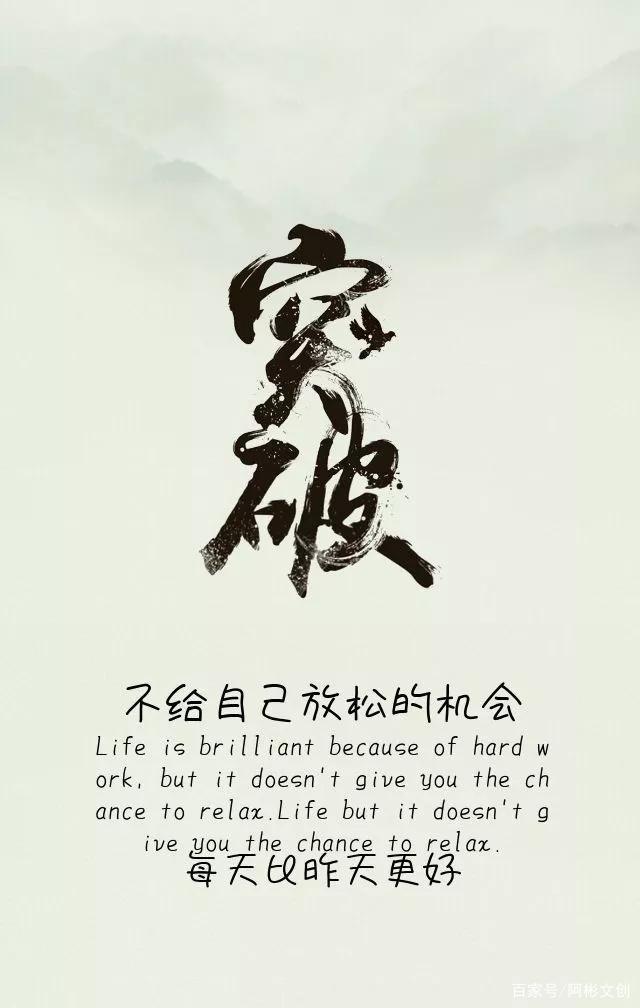 突
破
不给自己放松的机会
Life is brilliant because of hard w
ork, but it doesn't give you the ch
ance to relax.Life but it doesn't g
ive you the chance to relax.
每天比昨天更好
百家号/阿彬文创